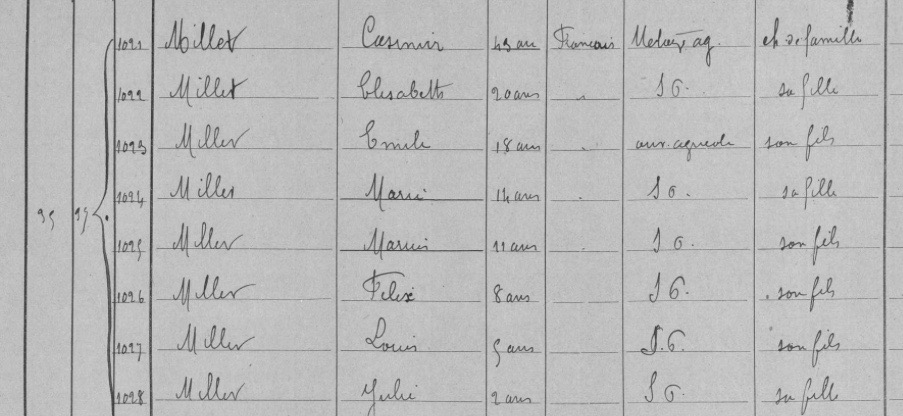 1021 Millet Casimir 43 ans Français ag. ch de famille
1022 Millet Elisabeth 20 ans " S G. sa fille
1023 Millet Emile 18 ans " ouv. agricole son fils
95 95 1024 Millet Marie 14 ans " S G. sa fille
1025 Millet 11 ans " S G. son fils
1026 Millet Felix 8 ans S G. son fils
1027 Millet Louis 5 ans S. G. son fils
1028 Millet Julie 2 ans S G. sa fille